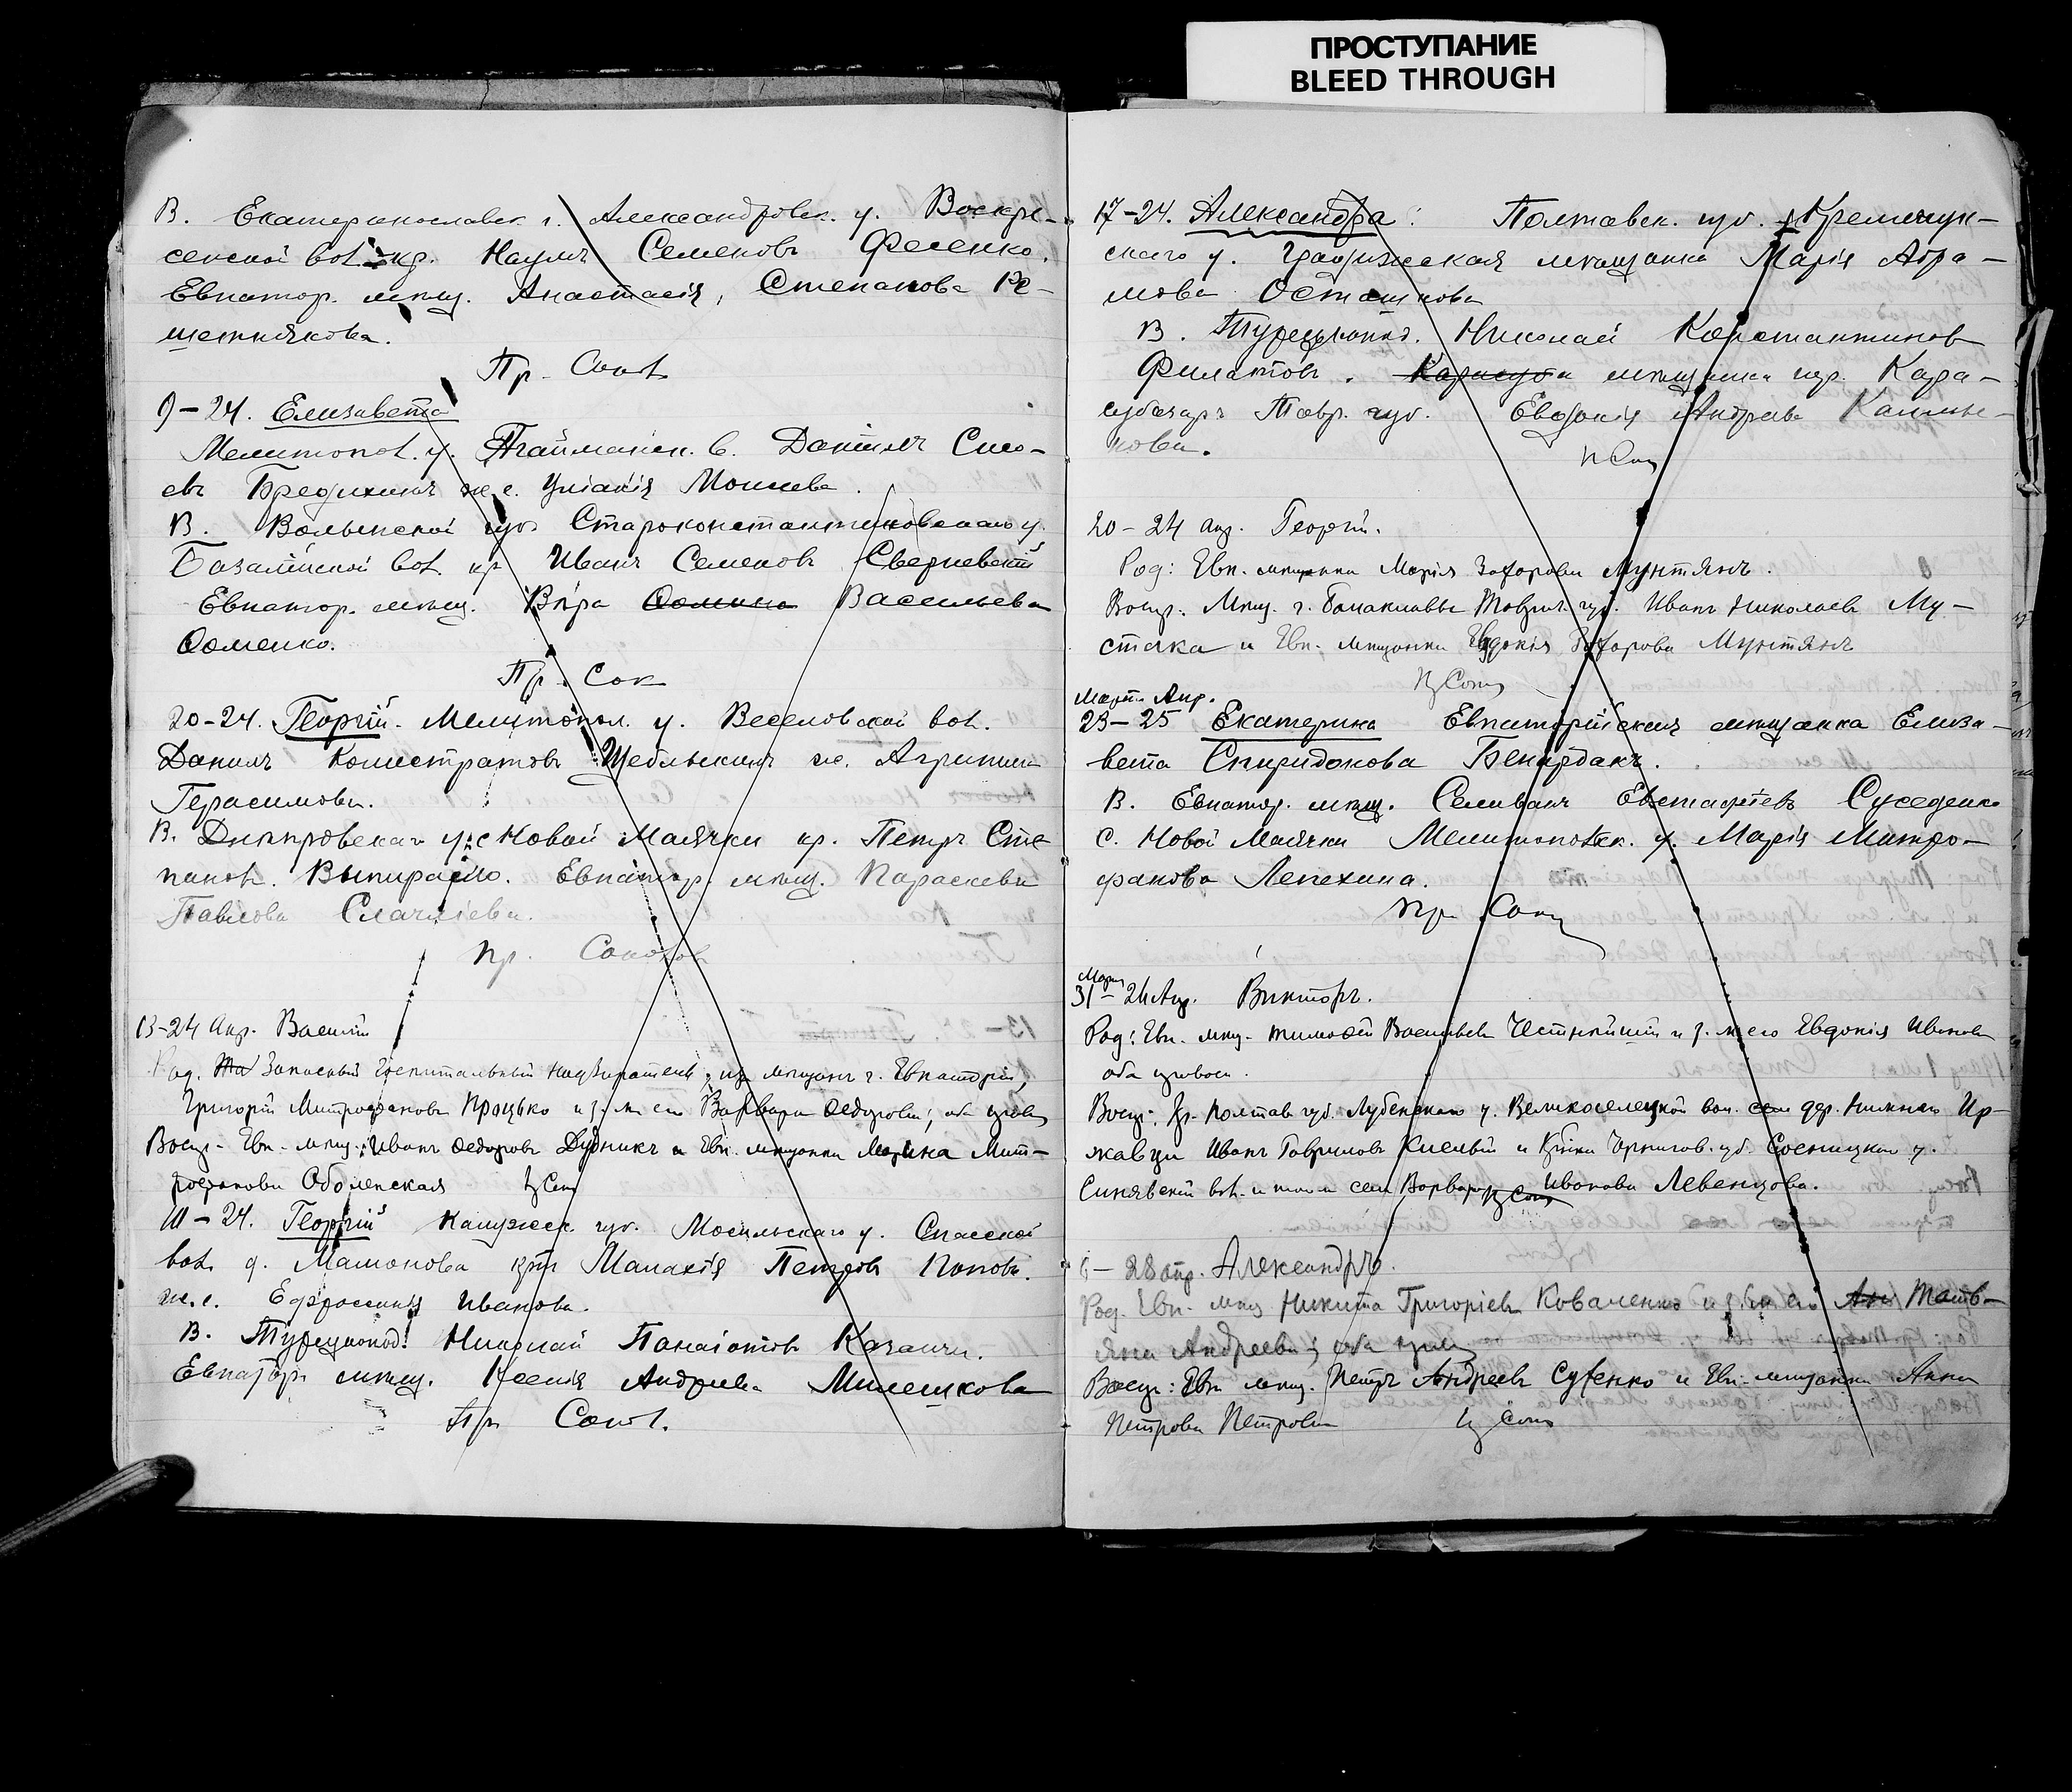 ПРОСТУПАНИЕ
BLEED THROUGH
В. Екатеринославск. г. Александровск. у. Воскре-
сенской вол. кр. Наумъ Семеновъ Фесенко.
Евпатор. мѣщ. Анастасія Степанова Ре-
шетнякова.
Пр. Сокол
9-24. Елизавета
Мелитопол. у. Агайманск. в. Даніилъ Сисо-
евъ Бредихинъ ж. е. Моисеева.
В. Волынской губ. Староконстантиновскаго у.
Базалійской вол. кр. Иванъ Семеновъ
Евпатор. мѣщ. Вѣра Фомина Васильева
Фоменко.
Пр. Сок
20-24. Георгій. Мелитопол. у. Веселовской вол.
Даніилъ Калистратовъ ж. Агрипина
Герасимова.
В. Днѣпровскаго у. с. Новой Маячки кр. Петръ Сте-
пановъ. Евпатор. мѣщ. Параскева
Павлова
Пр. Соколов
13-24 Апр. Василій
Род. Запасный Госпитальный надзиратель, изъ мѣщанъ г. Евпаторіи,
Григорій Митрофановъ Процько и з. ж. его Варвара Федорова; оба правосл
Восп. Евп. мѣщ. Иванъ Федоровъ Дудникъ и Евп. мѣщанка Марина Мит-
рофанова Оболенская
11-24. Георгій Калужск. губ. Мосальскаго у. Спасской
вол. д. Мамонова кр. Малахія Петровъ Поповъ.
ж. е. Ефросинія Иванова.
В. Турецкопод. Николай Панаіотовъ
Евпатор. мѣщ. Ксенія Андреева Милешкова
Пр. Сокол.
17-24. Александра: Полтавск. губ. Кременчуг-
скаго у. Градижская мѣщанка Марія Абра-
мова Осташкова
В. Турецкопод. Николай Константинов
Филатовъ. мѣщанка гор. Кара-
субазаръ Тавр. губ. Евдокія Андреева Калыш-
кова.
20-24 апр. Георгій.
Род: Евп. мѣщанка Марія Захарова Мунтянъ.
Воспр. Мѣщ. г. Балаклавы Таврич. губ. Иванъ Николаевъ Му-
стака и Евп. мѣщанка Евдокія Захарова Мунтянъ
Март. Апр.
23-25 Екатерина Евпаторійская мѣщанка Елиза-
вета Спиридонова Бенардакъ.
В. Евпатор. мѣщ. Селиванъ Евстафіевъ
с. Новой Маячки Мелитопольск. у. Марія Митро-
фанова Лепехина.
Пр. Сокол
Март
31-24 Апр. Викторъ.
Род: Евп. мѣщ. Тимофей Васильевъ Честнѣйшій и з. ж. его Евдокія Иванова
оба правосл.
Восп: Кр. Полтав. губ. Лубенскаго у. Великоселецкой вол. дер. Нижнего Ир-
жавца Иванъ Гавриловъ и Кр-ка Чернигов. губ. Сосницкаго у.
Синявской вол. и того же села Варвара Иванова Левенцова.
6-28 апр. Александръ.
Род. Евп. мѣщ Никита Григоріевъ Коваленко и з. ж. его Татія-
яна Андреева; оба правосл
Восп: Евп. мѣщ. Петръ Андреевъ и Евп. мѣщанка Анна
Петрова Петрова